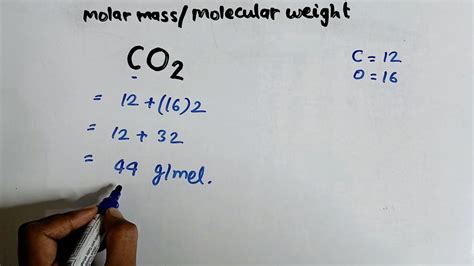 molar mass/molecular weight
CO2
C = 12
O = 16
= 12 + (16)2
= 12 + 32
= 44 g/mol.